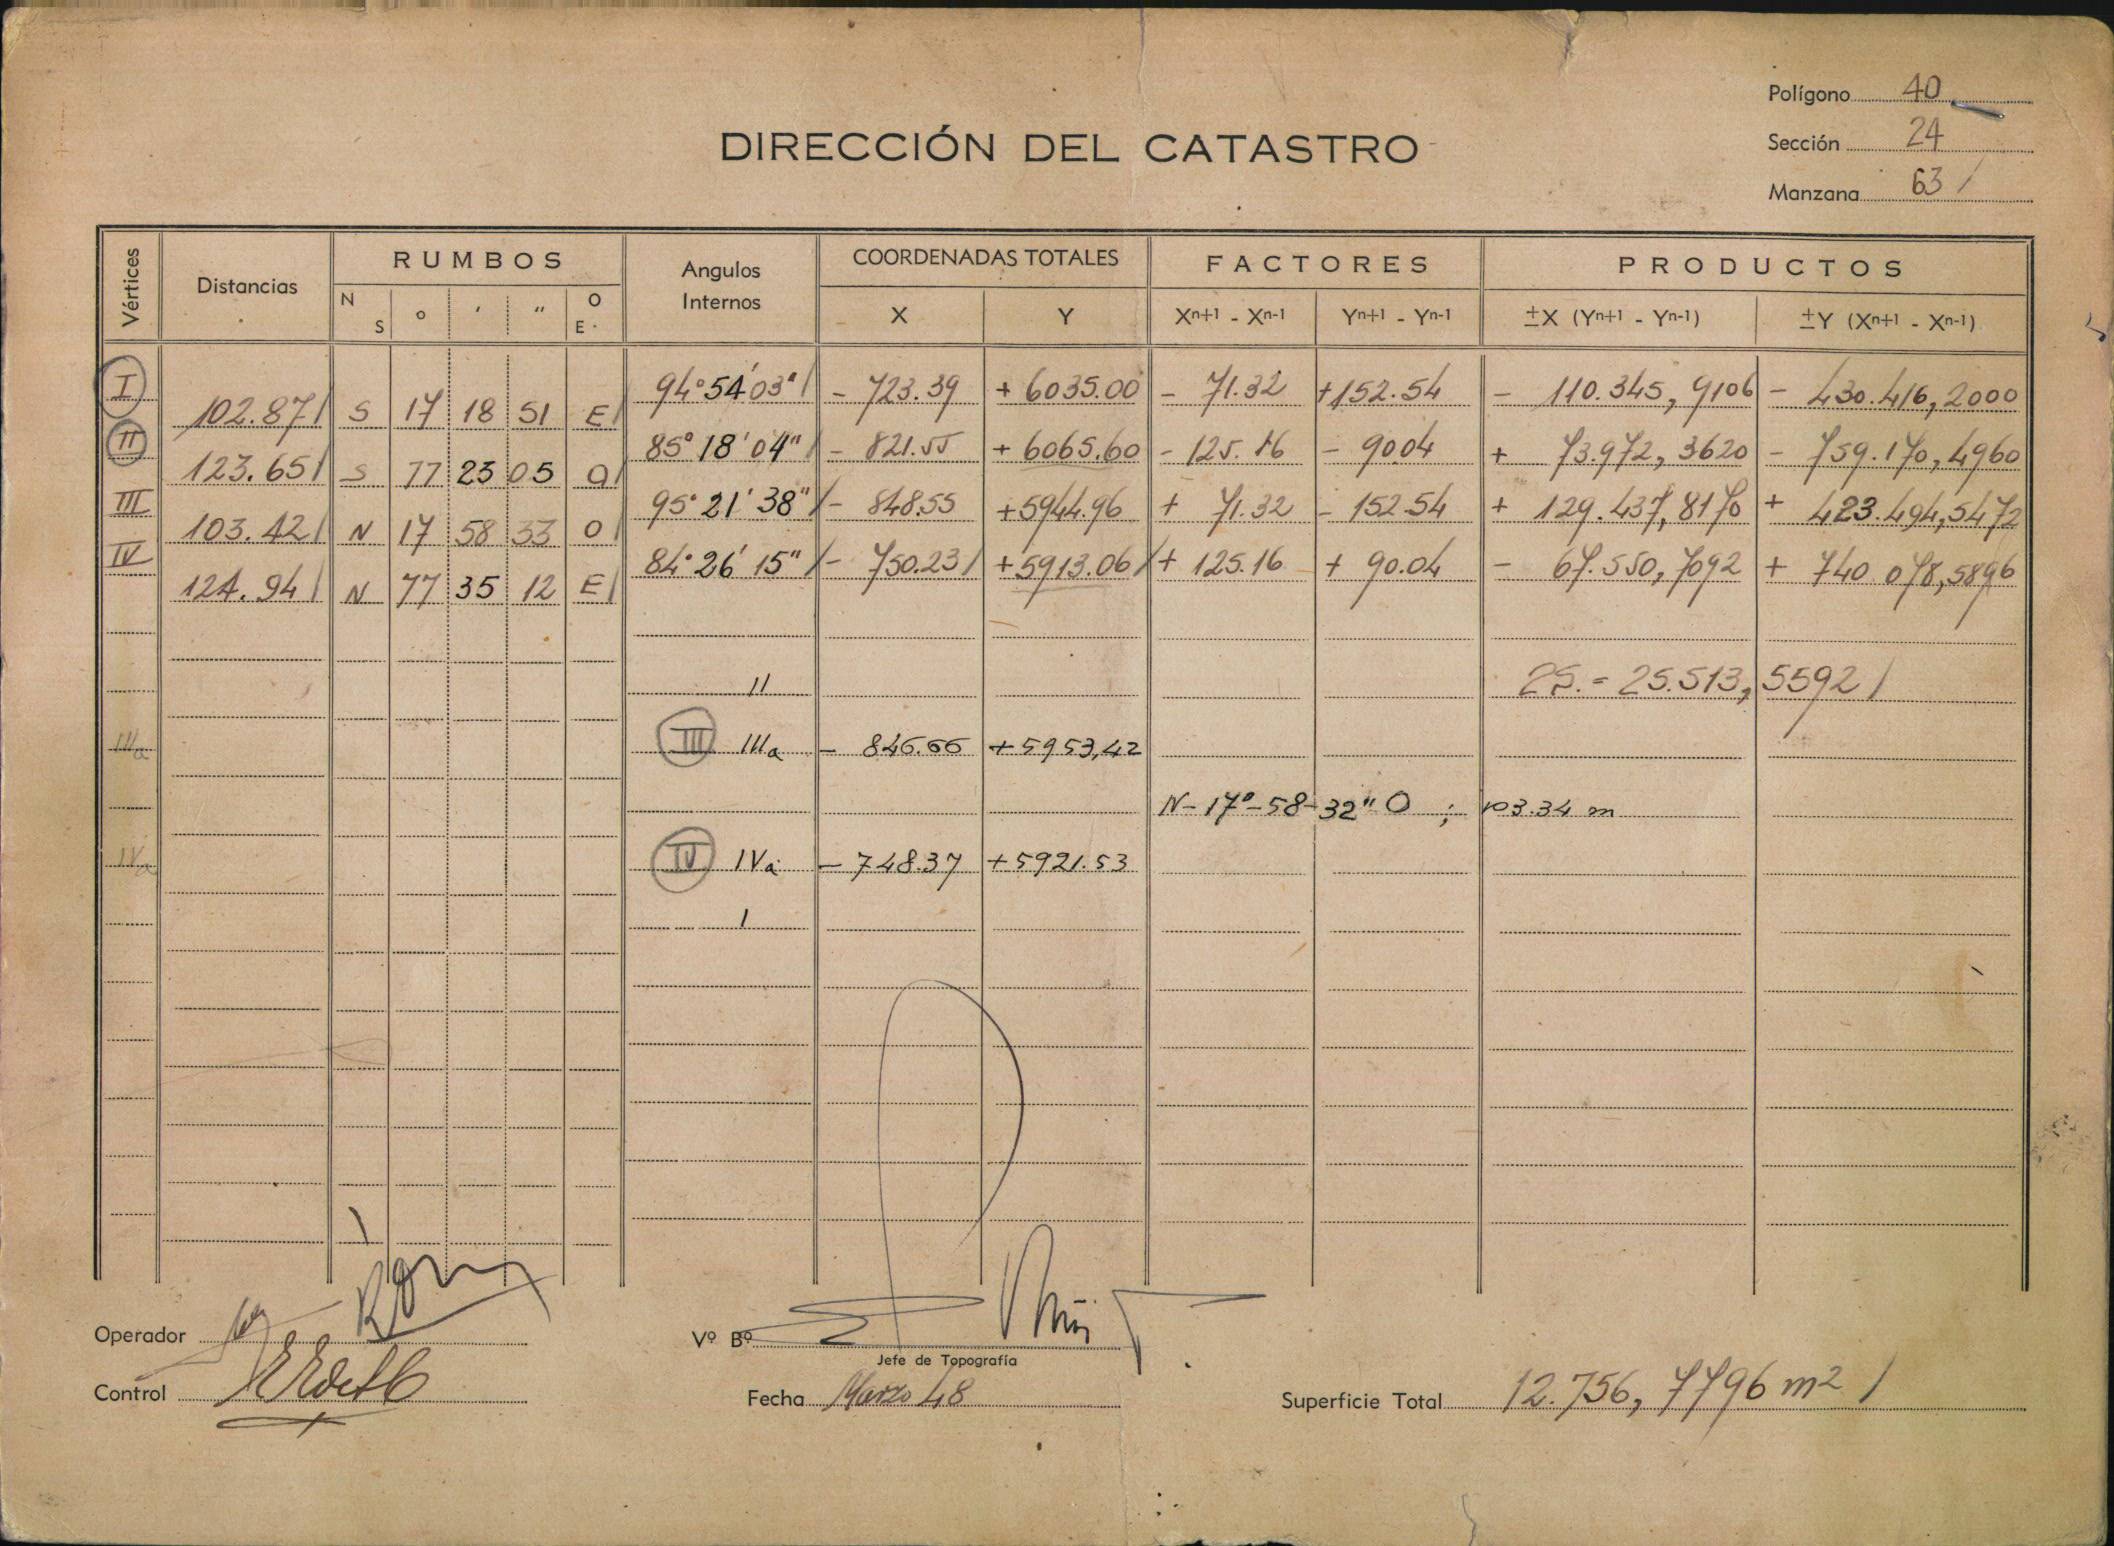 Polígono 40
Sección 24
Manzana 63 /
DIRECCIÓN DEL CATASTRO
Vértices Distancias RUMBOS Angulos Internos COORDENADAS TOTALES FACTORES PRODUCTOS
N S o ' " O E X Y Xn+1 - Xn-1 Yn+1 - Yn-1 ±X (Yn+1 - Yn-1) ±Y (Xn+1 - Xn-1)
I 94° 54' 03" / - 723.39 + 6035.00 - 71.32 + 152.54 - 110.345,9106 - 430.416,2000
102.87 / S 17 18 51 E /
II 85° 18' 04" / - 821.55 + 6065.60 - 125.16 - 90.04 + 73.972,3620 - 759.170,4960
123.65 / S 77 23 05 O /
III 95° 21' 38" / - 848.55 + 5944.96 + 71.32 - 152.54 + 129.437,8170 + 423.494,5472
103.42 / N 17 58 33 O /
IV 84° 26' 15" / - 750.23 / + 5913.06 / + 125.16 + 90.04 - 67.550,7092 + 740.078,5896
124.94 / N 77 35 12 E /
II 2S. = 25.513,5592 /
IIIa III IIIa - 846.66 + 5953,42
N - 17° - 58 - 32" O ; 103.34 m
IVa IV IVa - 748.37 + 5921.53
I
Operador
Vº Bº
Jefe de Topografía
Control
Fecha Marzo 48
Superficie Total 12.756,7796 m2 /